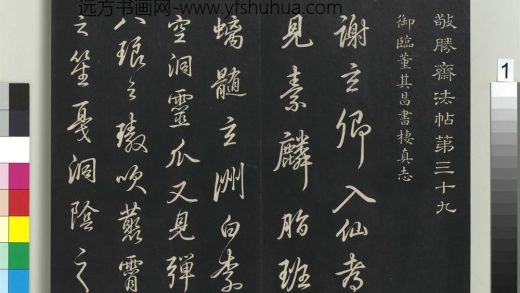 远方书画网-www.yfshuhua.com
敬勝齋法帖第三十九
御臨董其昌書棲真志
謝玄卿入仙
見素麟脂班
螭髓玄洲白柰
空洞靈瓜又見彈
八琅之璈吹叢霄
之笙戛洞陰之
1